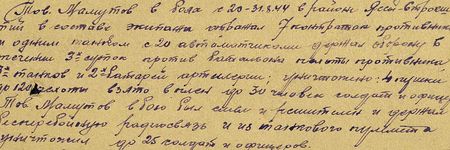 Тов. Мамутов в боях с 20-31.8.44 в районе Яссы-
в составе экипажа отражал 7 контратак противника
и одним танком с 20 автоматчиками держал оборону в
течении 3х суток против батальона пехоты противника
танков и 2х батарей артилерии; уничтожено: 4 пушки
до 120 взято в плен до 30 человек солдат и
Тов Мамутов в бою был смел и решителен и держал
бесперебойную радиосвязь и из танкового пулемета
уничтожил до 25 солдат и офицеров.